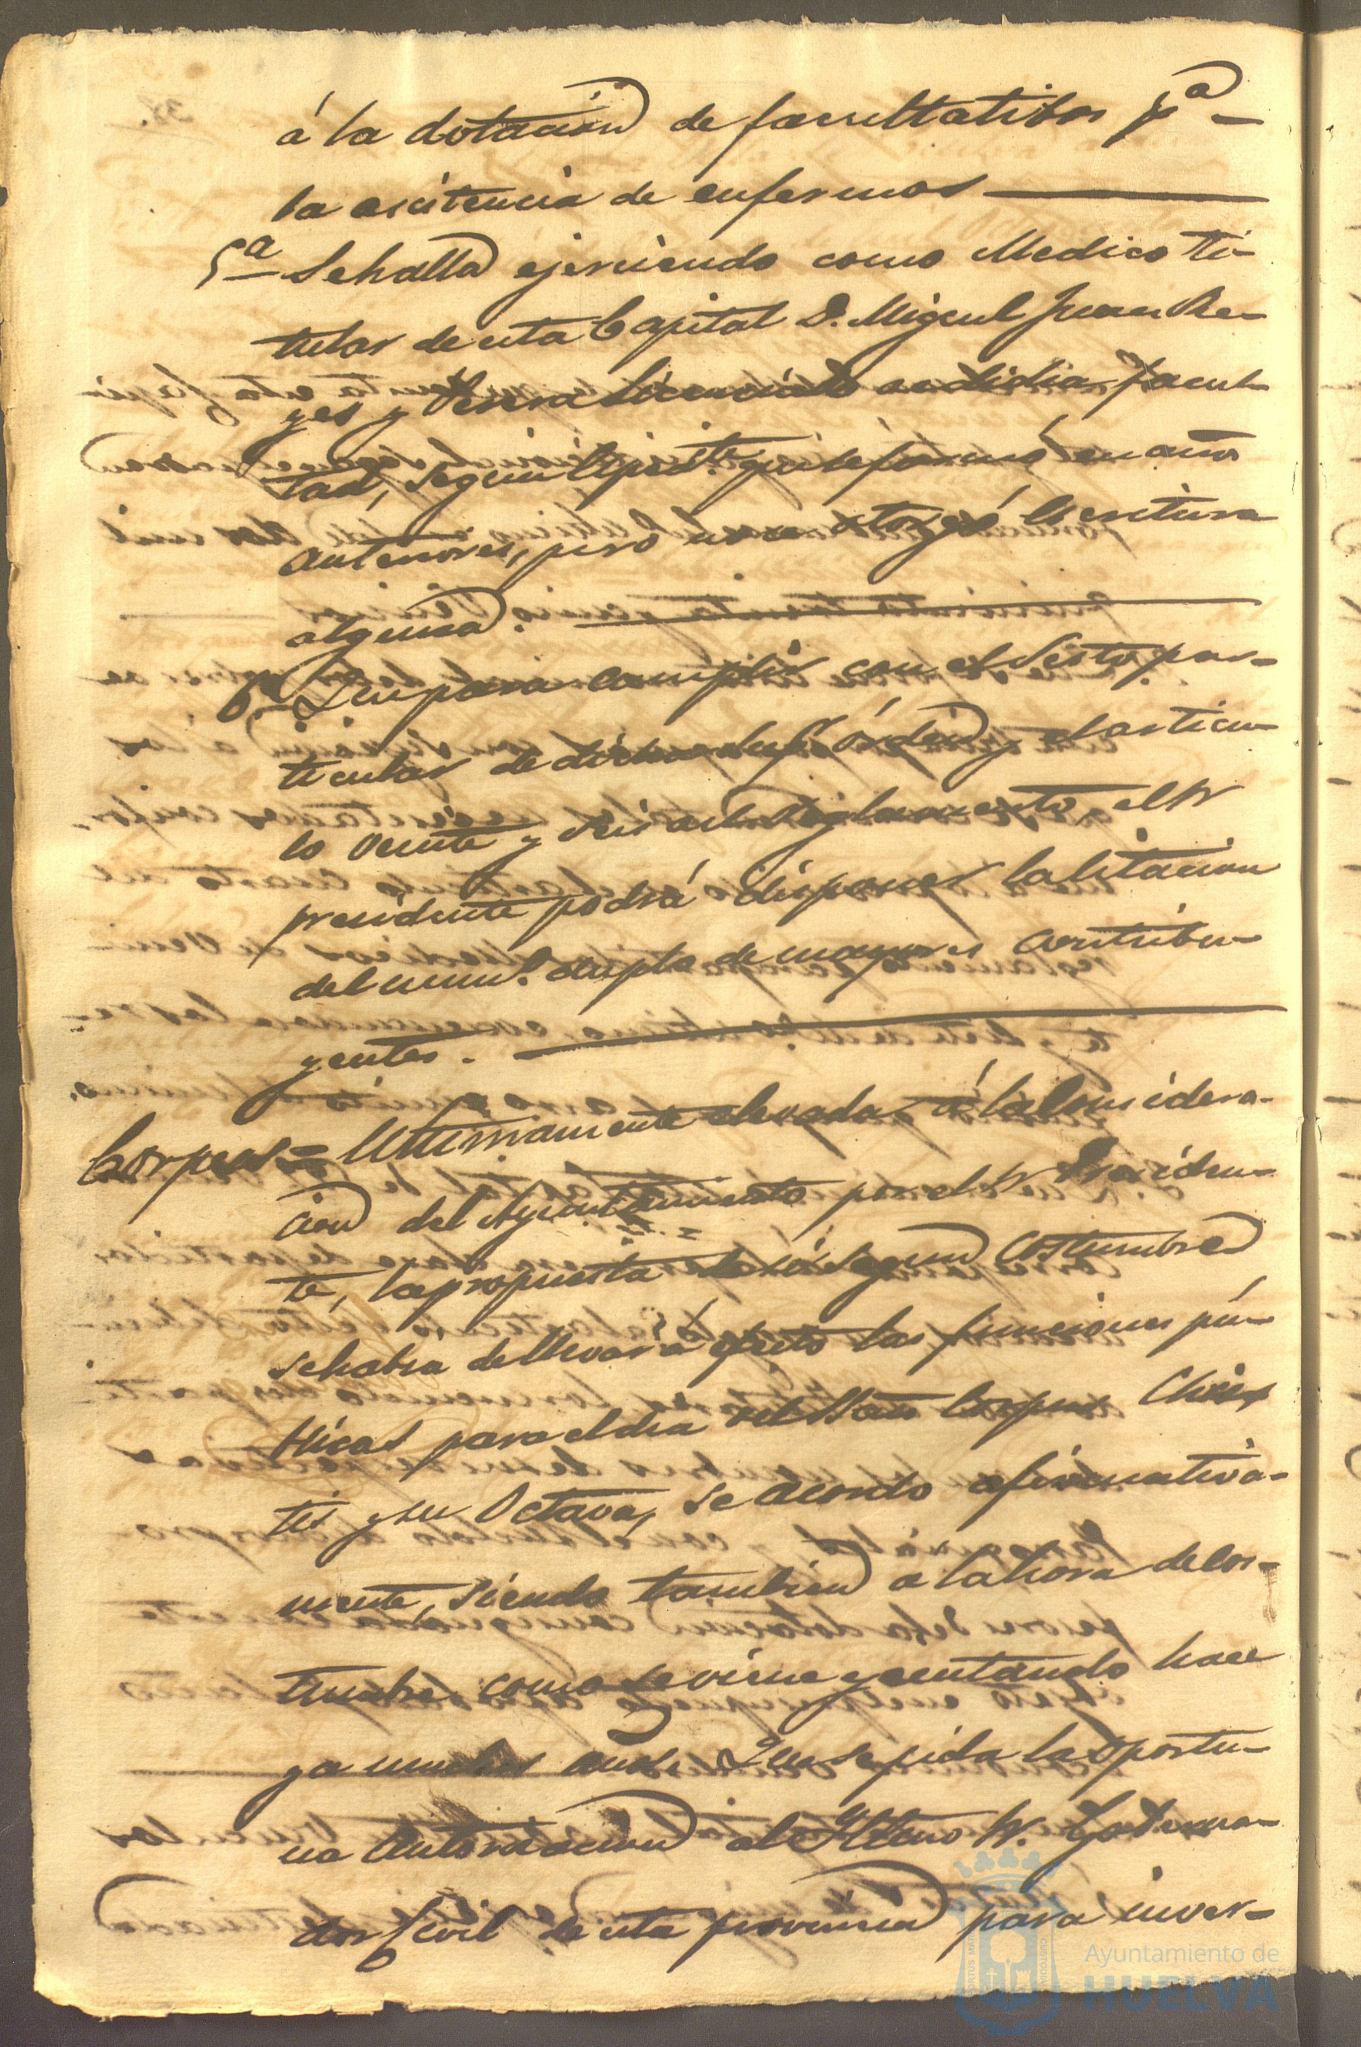 á la dotacion de facultatibos pª
la acistencia de enfermos
5ª Se halla ejerciendo como Medico ti-
tular de esta Capital D. Miguel Juan Re-
yes y Licenciado facul-
tad, segun que se formó en años
anteriores, pero no se otorgó Escritura
alguna.
6ª Que para cumplir con el Sesto par-
ticular de dicha órden y el articu-
lo veinte y seis del Reglamento, el Sr
presidente podrá disponer la citacion
del num.º duplo de mayores contribu-
yentes.
Corpus = Ultimamente elevada á la Considera-
cion del Ayuntamiento por el Sr Presiden-
te, la propuesta de si segun Costumbre
se habia de llevar á efecto las funciones pú-
blicas para el dia del Ssmo Corpus Chris-
tis y su Octava, se acordo afirmativa-
mente, siendo tambien a la hora de cos-
tumbre como se viene ejecutando hace
ya muchos años. Que se pida la oportu-
na Autorizacion al Yltmo Sr. Goberna-
dor Civil de esta provincia para inver-
Ayuntamiento de
HUELVA